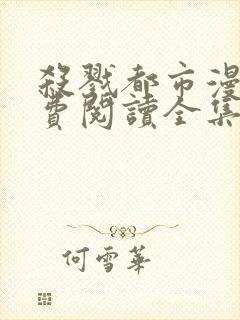 殺戮都市漫
費閱讀全集
何雪華